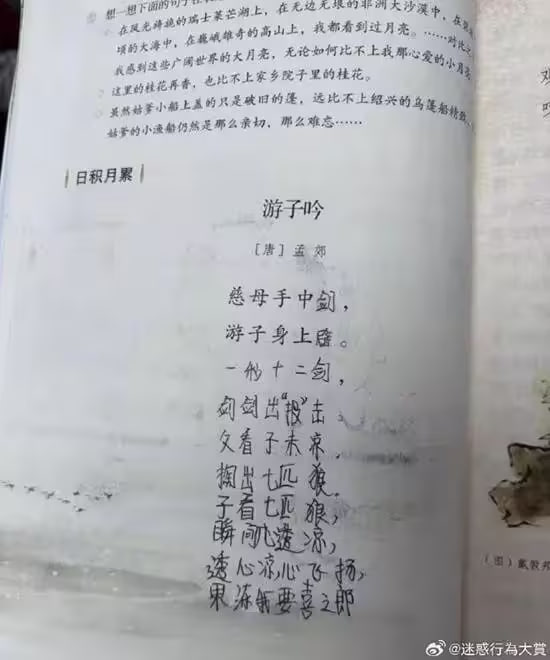 想一想下面的句子
在风光旖旎的瑞士莱芒湖上，在无边无垠的非洲大沙漠中，在
顷的大海中，在巍峨雄奇的高山上，我都看到过月亮。……对比之
我感到这些广阔世界的大月亮，无论如何比不上我那心爱的小月亮
这里的桂花再香，也比不上家乡院子里的桂花。
虽然姑爹小船上盖的只是破旧的篷，远比不上绍兴的乌篷船精致，
姑爹的小渔船仍然是那么亲切、那么难忘……
日积月累
游子吟
［唐］孟 郊
慈母手中剑，
游子身上
一 十二剑，
剑剑出“投”击
父看子未凉，
掏出七匹狼。
子看七匹狼，
瞬间 透凉，
透心凉，心飞扬，
果冻 要喜之郎
（图）戴敦邦
@迷惑行為大賞